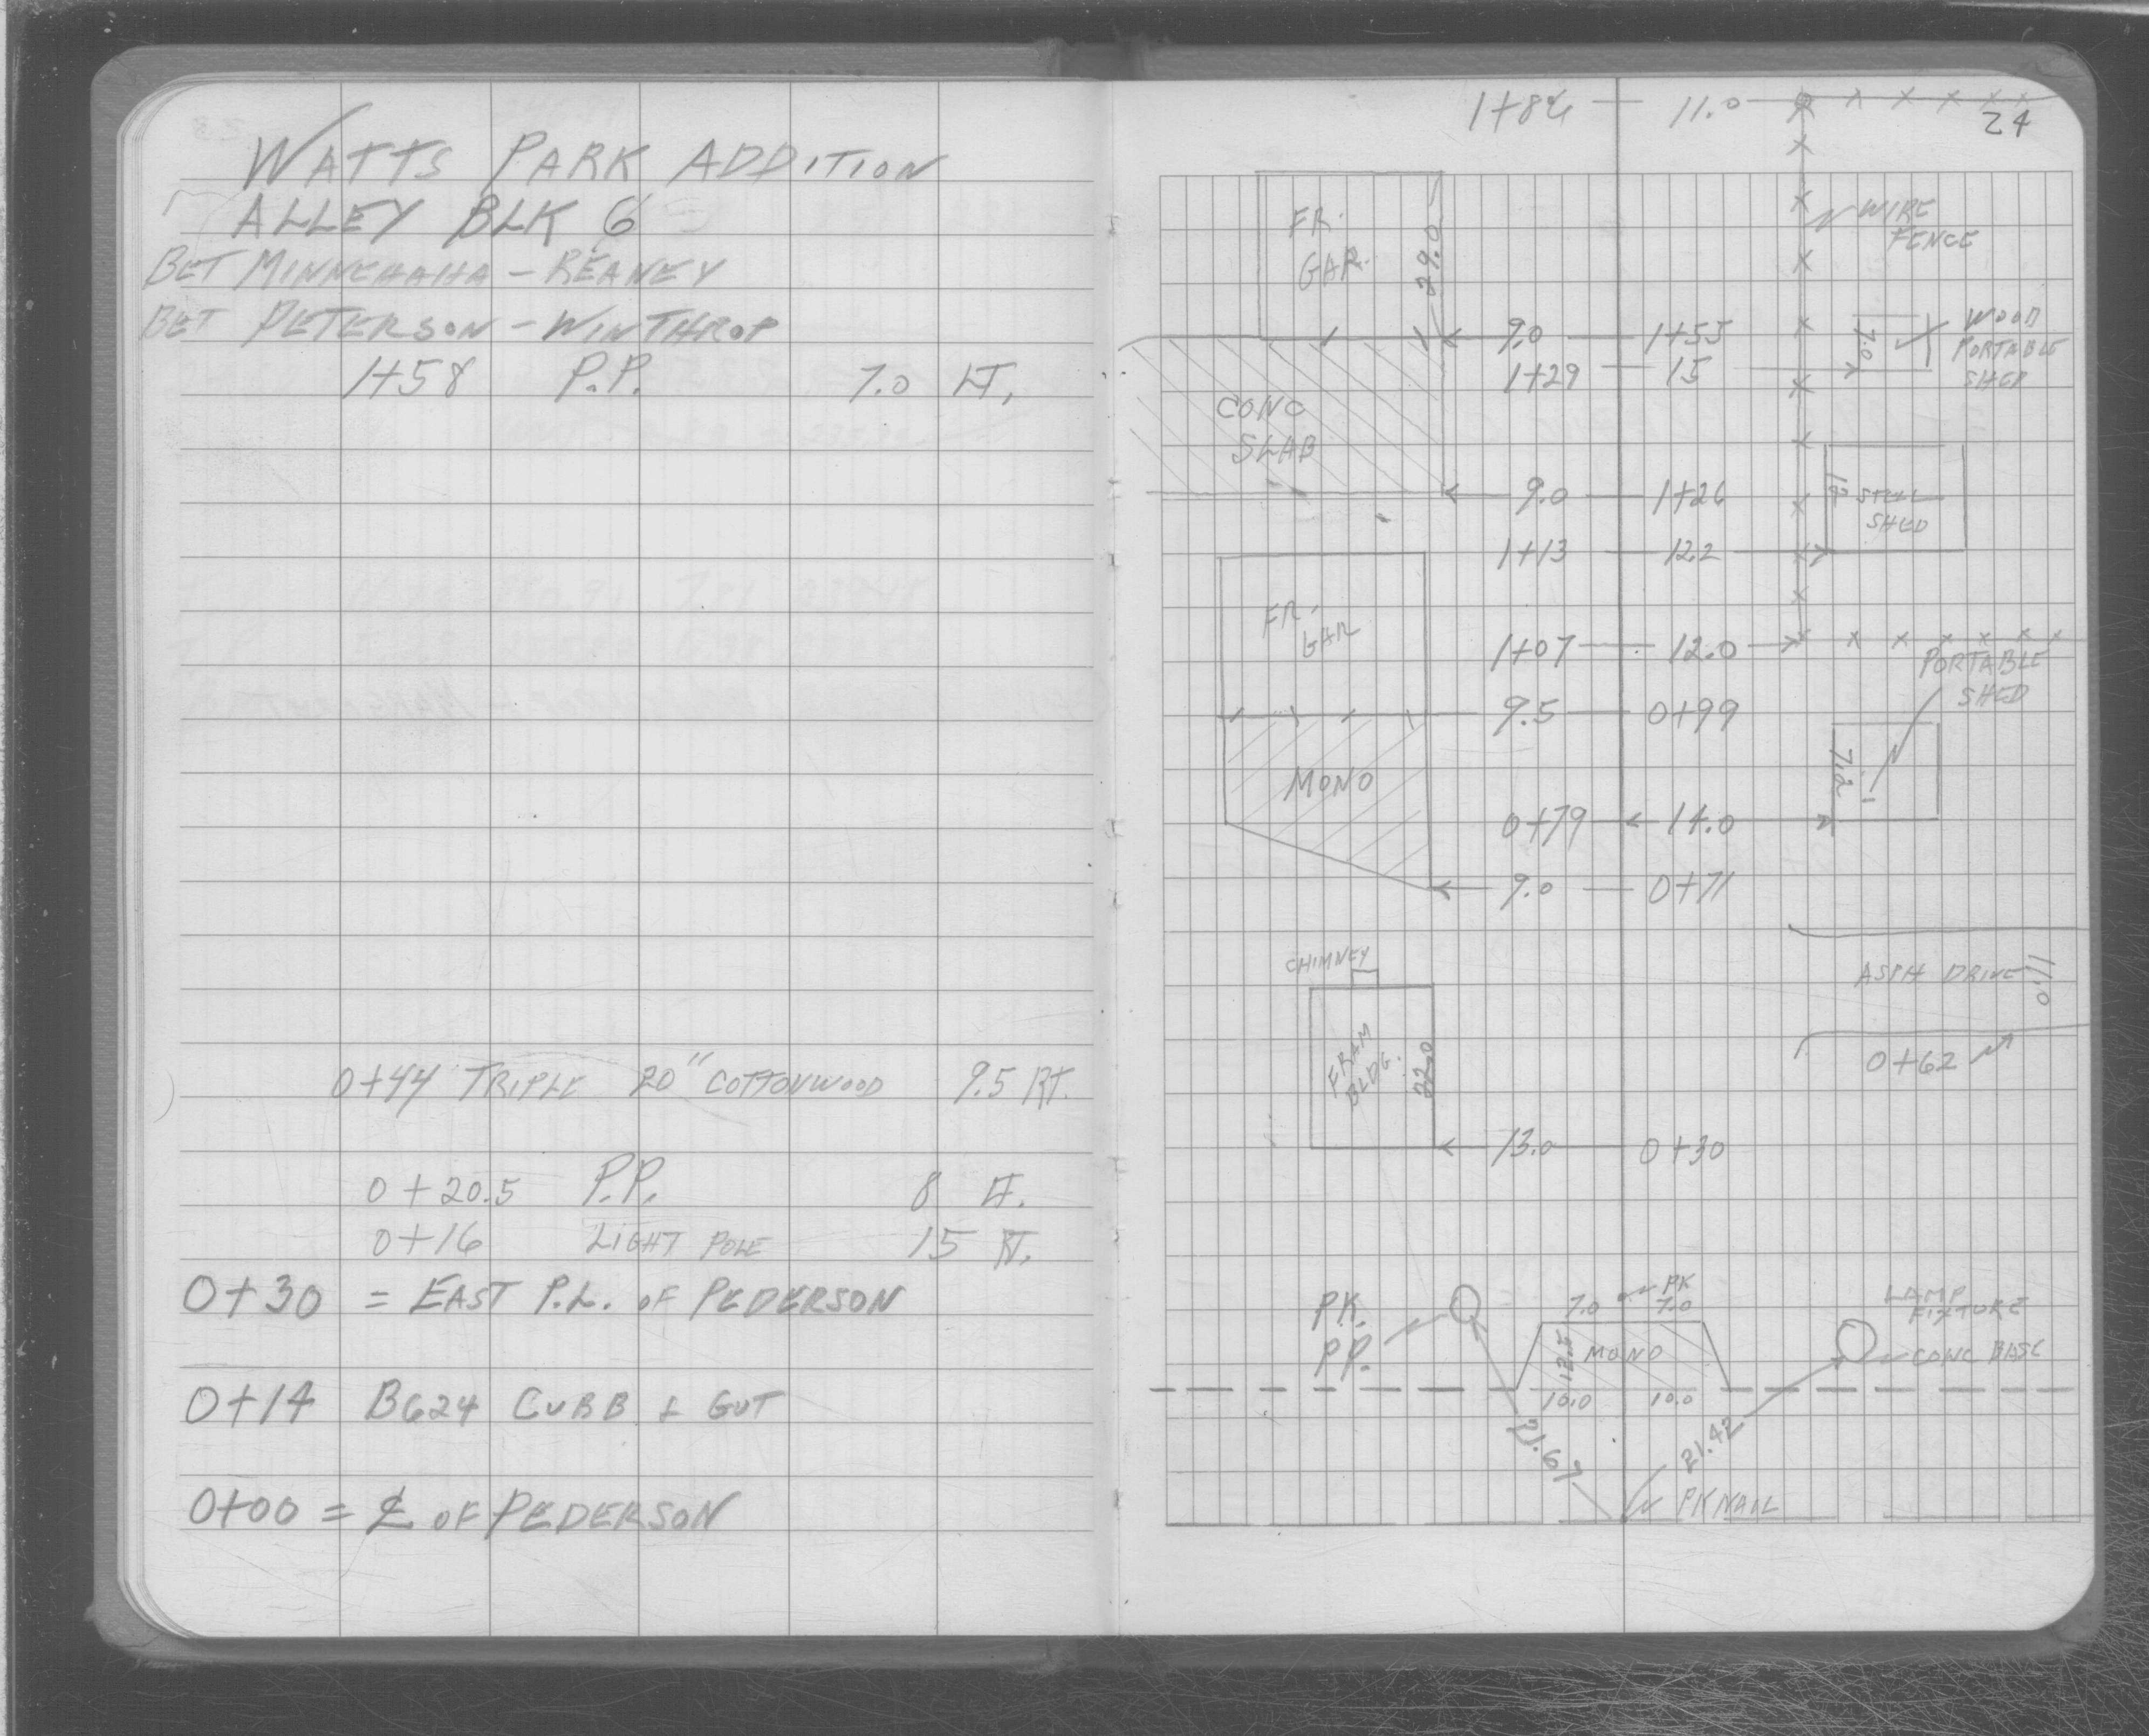 WATTS PARK ADDITION
ALLEY BLK 6
BET MINNEHAHA - REANEY
BET PETERSON - WINTHROP
1+58 P.P. 7.0 LT.
0+44 TRIPLE 20" COTTONWOOD 9.5 RT.
0+20.5 P.P. 8 LT.
0+16 LIGHT POLE 15 RT.
0+30 = EAST P.L. OF PEDERSON
0+14 B624 CURB & GUT
0+00 = ℄ OF PEDERSON
24
1+86 11.0
FR. GAR. 29.0
WIRE FENCE
9.0 1+55
1+29 15
7.0
WOOD PORTABLE SHED
CONC SLAB
9.0 1+26
STEEL SHED
1+13 12.2
FR. GAR
1+07 12.0
PORTABLE SHED
9.5 0+99
7.2
MONO
0+79 14.0
9.0 0+71
CHIMNEY
ASPH DRIVE 11.0
FRAM BLDG. 22.0
0+62
13.0 0+30
PK
P.K. P.P.
7.0 7.0
LAMP FIXTURE
12.5 MONO
CONC BASE
10.0 10.0
21.67 21.42
PK NAIL